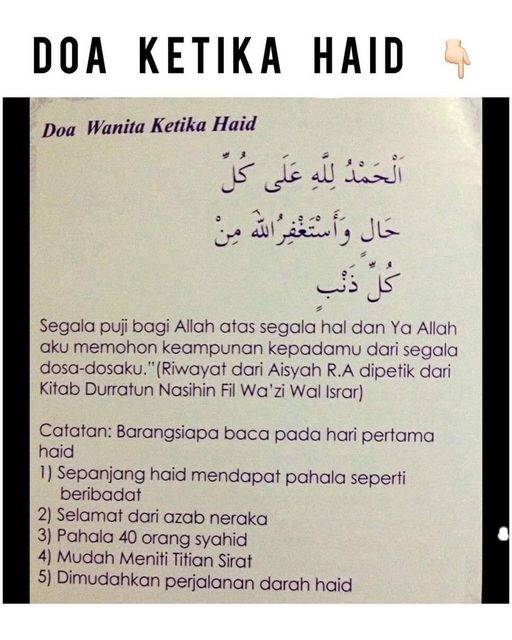 DOA KETIKA HAID 👇🏻
Doa Wanita Ketika Haid
اَلْحَمْدُ لِلّٰهِ عَلَى كُلِّ
حَالٍ وَأَسْتَغْفِرُ اللّٰهَ مِنْ
كُلِّ ذَنْبٍ
Segala puji bagi Allah atas segala hal dan Ya Allah
aku memohon keampunan kepadamu dari segala
dosa-dosaku."(Riwayat dari Aisyah R.A dipetik dari
Kitab Durratun Nasihin Fil Wa'zi Wal Israr)
Catatan: Barangsiapa baca pada hari pertama
haid
1) Sepanjang haid mendapat pahala seperti
beribadat
2) Selamat dari azab neraka
3) Pahala 40 orang syahid
4) Mudah Meniti Titian Sirat
5) Dimudahkan perjalanan darah haid